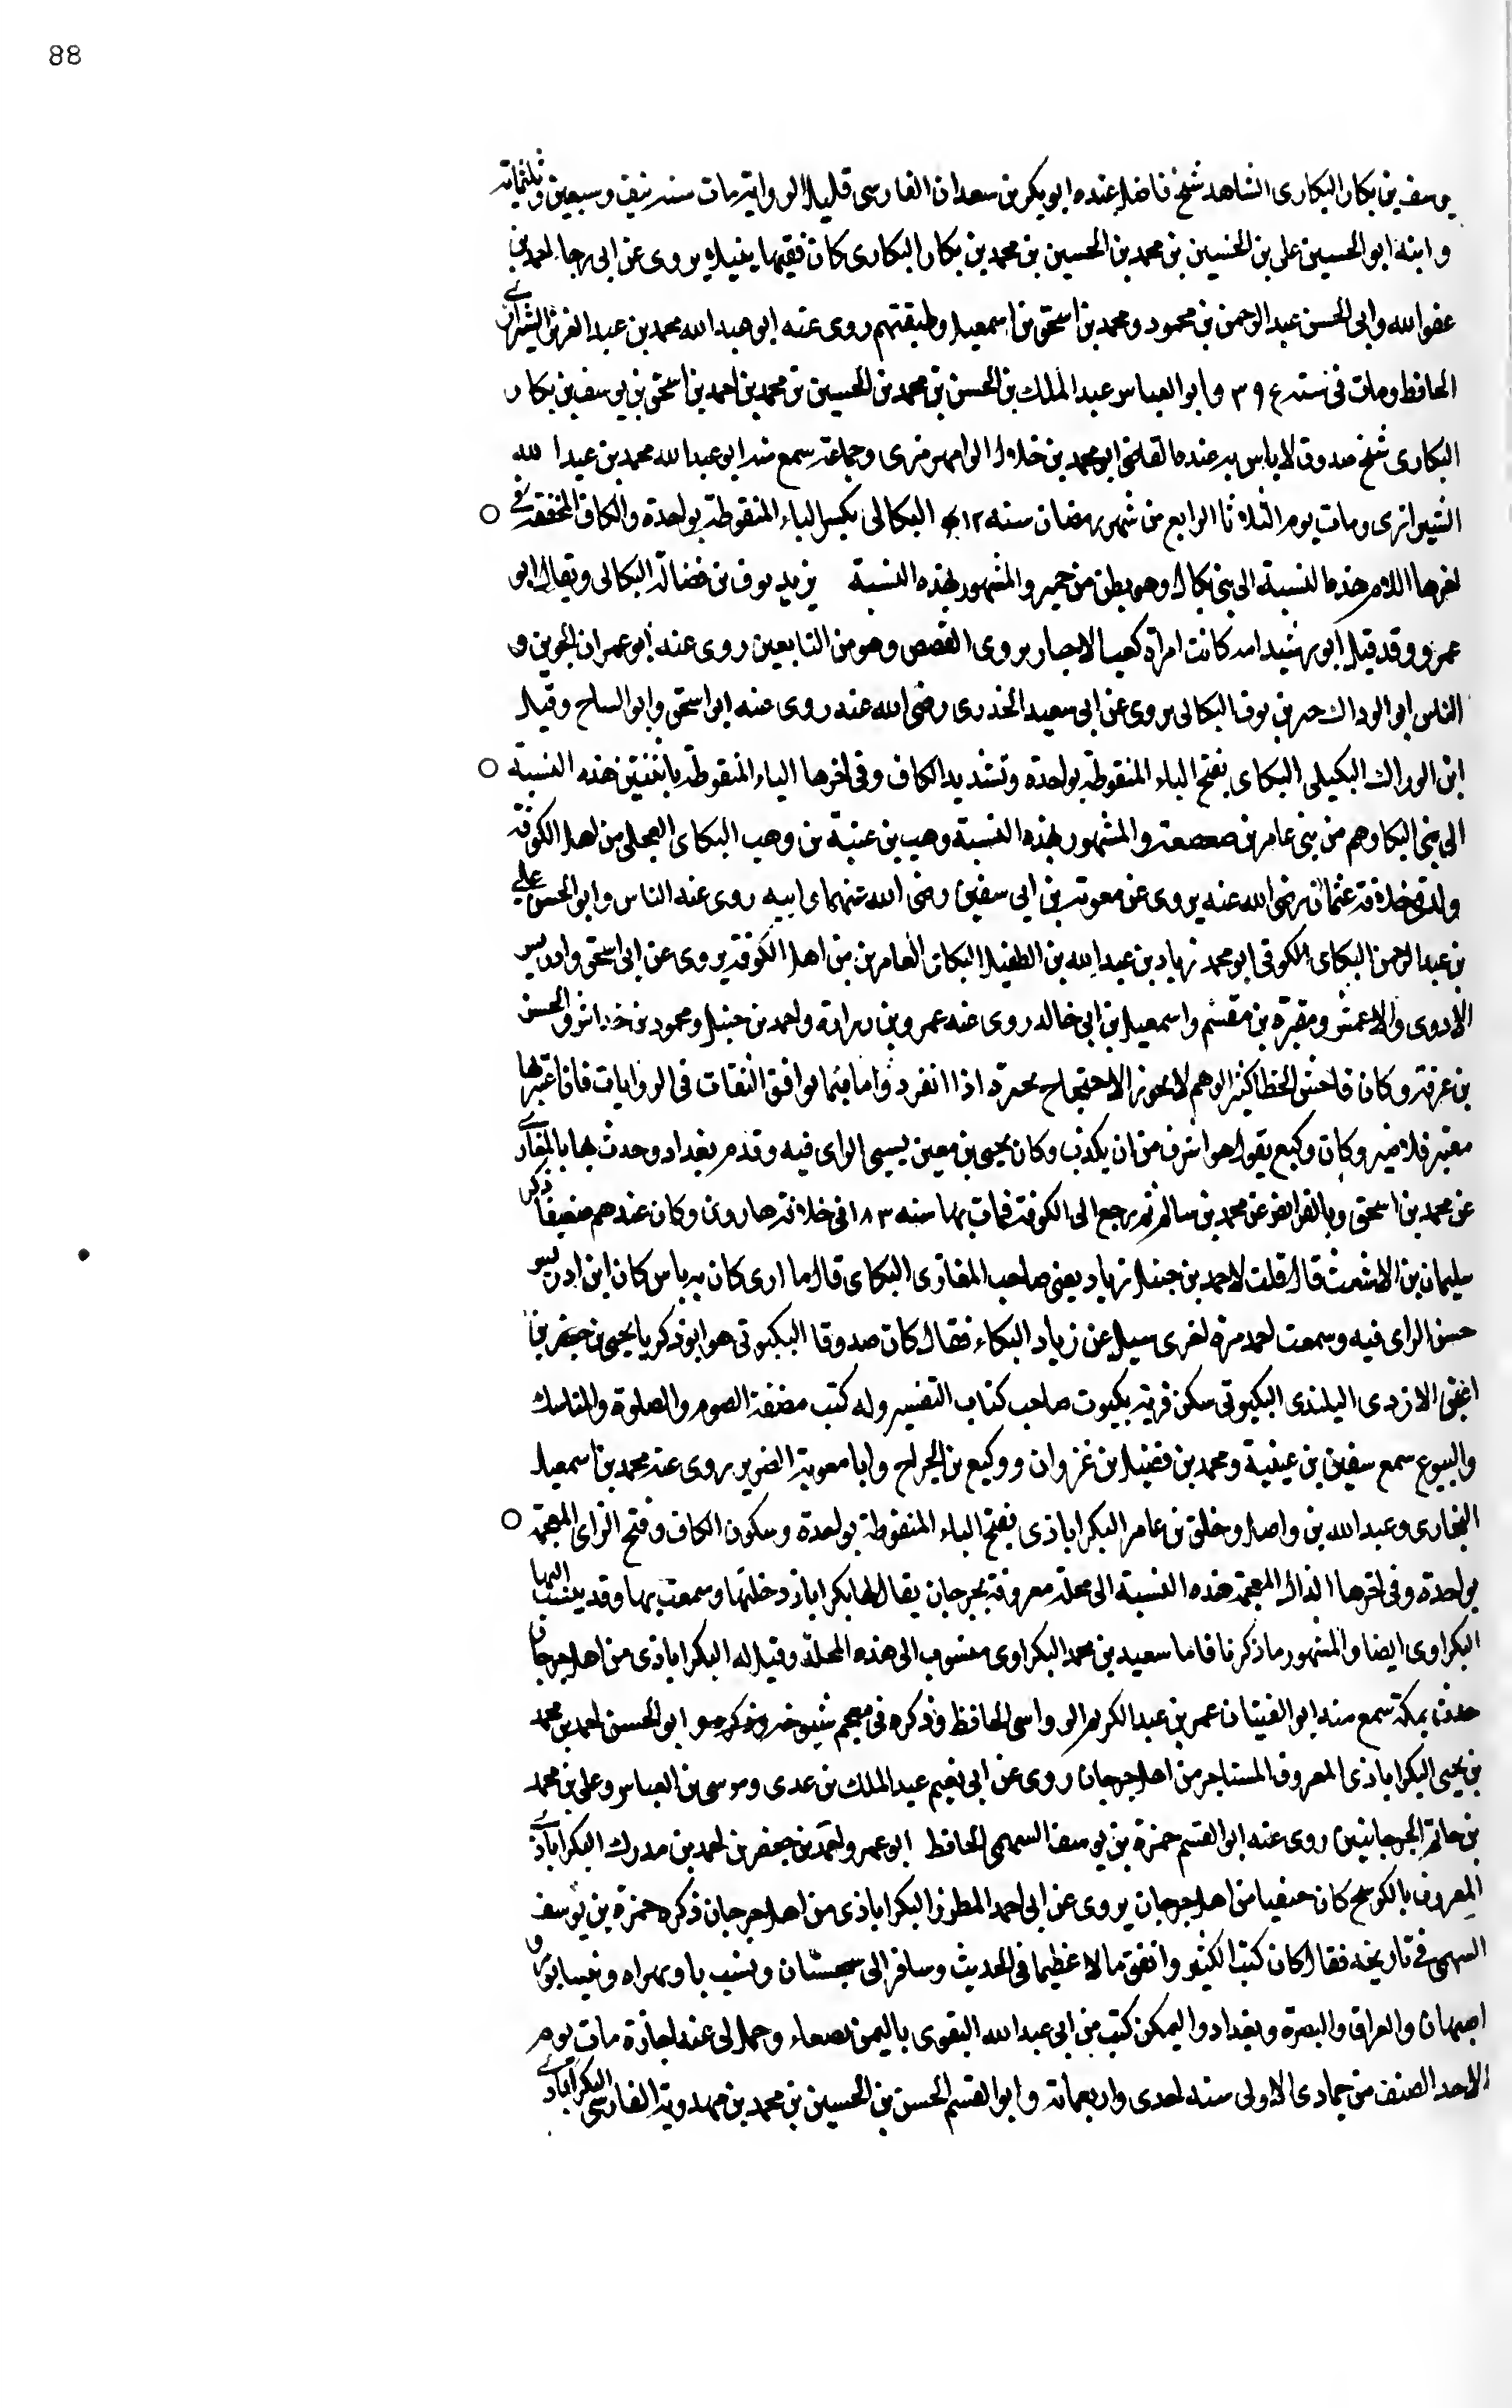 88
يوسف بن بكار البكارى الشاهد شيخ فاضل عنده ابو بكر بن سعدان الفارسى قليل الرواية مات سنة نيف وسبعين وثلثمائة
وابنه ابو الحسين على بن الحسين بن محمد بن الحسين بن محمد بن بكار البكارى كان فقيها نبيلا يروى عن ابى رجا احمد بن
عفو الله وابى الحسن عبد الرحمن بن محمود ومحمد بن اسحق بن اسمعيل وطبقتهم روى عنه ابو عبد الله محمد بن عبد العزيز الشيرازى
الحافظ ومات فى سنة ٣٩٤ وابو العباس عبد الملك بن الحسن بن محمد بن الحسين بن محمد بن احمد بن اسحق بن يوسف بن بكار
البكارى شيخ صدوق لا باس به عنده القاضى ابو محمد بن خلاد الرامهرمزى وجماعة سمع منه ابو عبد الله محمد بن عبد الله
الشيرازى ومات يوم الثلاثا الرابع من شهر رمضان سنه البكالى بكسر الباء المنقوطة بواحدة والكاف المخففة فى
اخرها اللام هذه النسبة الى بنى بكال وهو بطن من حمير والمشهور بهذه النسبة يزيد نوف بن فضالة البكالى ويقال ابو
عمرو وقد قيل ابو رشيد امه كانت امراة كعب الاحبار يروى القصص وهو من التابعين روى عنه ابو عمران الجوني و
الناس ابو الوداك جبر بن نوف البكالى يروى عن ابى سعيد الخدرى رضى الله عنه روى عنه ابو اسحق وابو الساح وقيل
ابن الوداك البكيلى البكاى بفتح الباء المنقوطة بواحدة وتشديد الكاف وفى اخرها الياء المنقوطة باثنتين هذه النسبة
الى بنى البكا وهم من بنى عامر بن صعصعة والمشهور بهذه النسبة وهب بن عنبة بن وهب البكاى العجلى من اهل الكوفة
ولد فى خلافة عثمان رضى الله عنه يروى عن معوية بن ابى سفين رضى الله عنهما ى ابيه روى عنه الناس وابو الحسن على
بن عبد الرحمن البكاى الكوفى ابو محمد زياد بن عبد الله بن الطفيل البكاى العامرى من اهل الكوفة يروى عن ابى اسحق وادريس
الاودى والاعمش ومغيرة بن مقسم واسمعيل بن ابى خالد روى عنه عمرو بن زرارة واحمد بن حنبل ومحمود بن خداش والحسن
بن عرفة وكان فاحش الخطا كثير الوهم لا يجوز الاحتجاج بخبره اذا انفرد واما فيما يوافق الثقات فى الروايات فان اعتبر بها
معتبر فلا ضير وكان وكيع يقول هو اشرف من ان يكذب وكان يحيى بن معين يسيى الراى فيه وقدم بغداد وحدث بها بالمغازى
عن محمد بن اسحق وبالفرايض عن محمد بن سالم ثم رجع الى الكوفة فمات بها سنه ١٨٣ فى خلافة هارون وكان عندهم ضعيفا ذكر
سليمان بن الاشعث قال قلت لاحمد بن حنبل زياد يعنى صاحب المغازى البكاى قال ما ارى كان به باس كان ابن ادريس
حسن الراى فيه وسمعت احمد مرة اخرى سيل عن زياد البكاء فقال كان صدوقا البكيوتى هو ابو ذكريا يحيى بن جعفر بن
اعين الازدى البيكندى البكيوتى سكن قرية بكيوت صاحب كتاب التفسير وله كتب مصنفة الصوم والصلوة والمناسك
والبيوع سمع سفين بن عيينة ومحمد بن فضيل بن غزوان ووكيع بن الجراح وابا معوية الضرير روى عنه محمد بن اسمعيل
البخارى وعبد الله بن واصل وخلق بن عامر البكراباذى بفتح الباء المنقوطة بواحدة وسكون الكاف وفتح الراى المهملة
بواحدة وفى اخرها الذال المعجمة هذه النسبة الى محلة معروفة بجرجان يقال لها بكراباذ دخلتها وسمعت بها وقد ينسب اليها
البكراوى ايضا والمشهور ما ذكرنا فاما سعيد بن محمد البكراوى منسوب الى هذه المحلة وقيل له البكراباذى من اهل جرجان
حدث بمكة سمع منه ابو الفتيان عمر بن عبد الكريم الرواسى الحافظ وذكره فى معجم شيوخه ابو الحسن احمد بن محمد
بن يحيى البكراباذى المعروف المستاجر من اهل جرجان روى عن ابى نعيم عبد الملك بن عدى وموسى بن العباس وعلى بن محمد
بن حاتم الجرجانيين روى عنه ابو القسم حمزة بن يوسف السهمى الحافظ ابو عمرو احمد بن جعفر بن احمد بن مدرك البكراباذى
المعروف بالكوسج كان حنفيا من اهل جرجان يروى عن ابى احمد المطرز البكراباذى من اهل جرجان ذكره حمزة بن يوسف
السهمى فى تاريخه فقال كان كتب الكثير وانفق مالا عظيما فى الحديث وسافر الى سجستان ونسب باو وهراه ونيسابور و
اصبهان والعراق والبصرة وبغداد واليمكن كتب من ابى عبد الله البغوى باليمن بصنعاء وحمل لى عنه اجازة مات يوم
الاحد الصنف من جمادى الاولى سنه احدى واربعمائة وابو القسم الحسن بن الحسين بن محمد بن مهدوية الفارسى البكراباذى